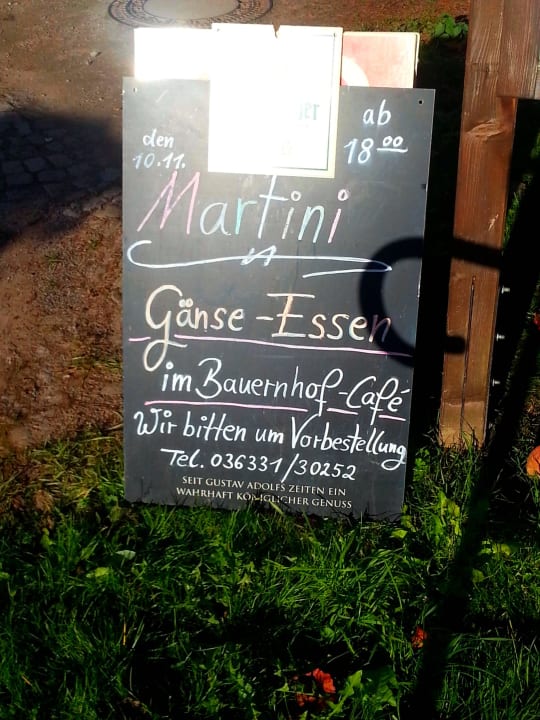 den
10.11.
ab
18⁰⁰
Martini
Gänse-Essen
im Bauernhof-Café
Wir bitten um Vorbestellung
Tel. 036331/30252
SEIT GUSTAV ADOLFS ZEITEN EIN
WAHRHAFT KÖNIGLICHER GENUSS